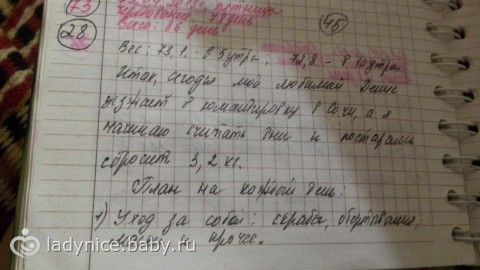 73
пятница
78 день
Всего: 86 день
46
28
Вес: 73,1 - в 5 утра. 72,8 - в 10 утра
Итак, сегодня мой любимый Денис
уезжает в командировку в Сочи, а я
начинаю считать дни и постараюсь
сбросить 3,2 кг.
План на каждый день:
1) Уход за собой: скрабы, обертывания,
и прочее.
ladynice.baby.ru